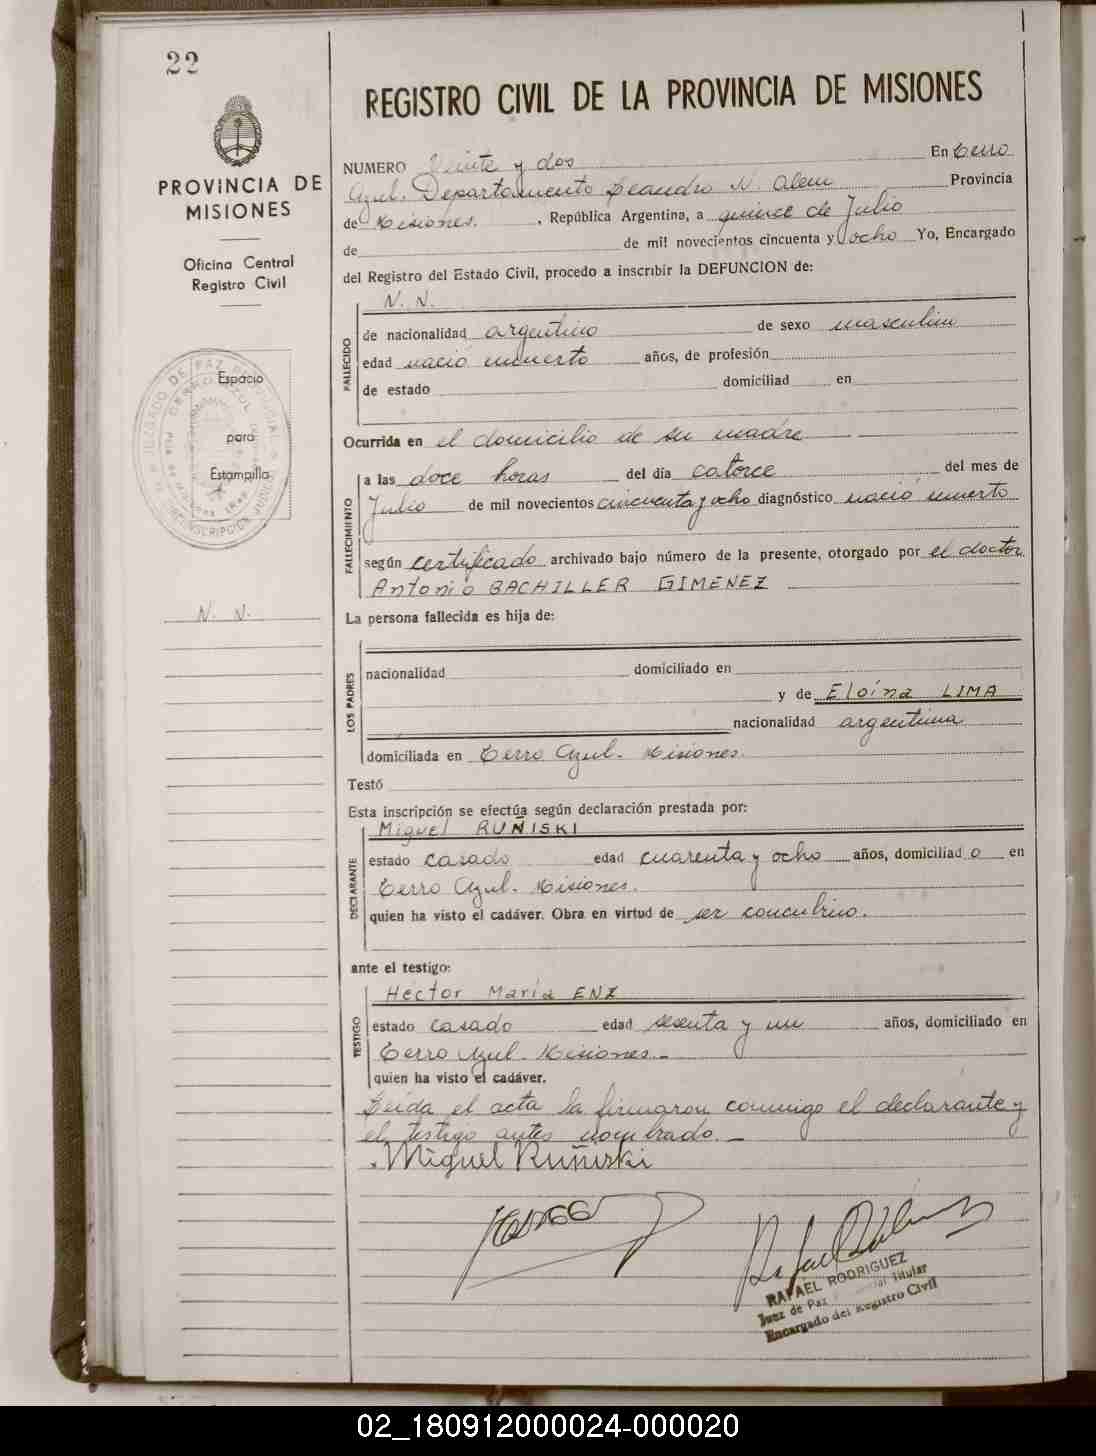 22
PROVINCIA DE
MISIONES
Oficina Central
Registro Civil
JUZGADO DE PAZ PROVINCIAL
CERRO AZUL
Espacio
para
Estampilla
N. N.
REGISTRO CIVIL DE LA PROVINCIA DE MISIONES
NUMERO Veinte y dos En Cerro
Azul. Departamento Leandro N. Alem Provincia
de Misiones. , República Argentina, a quince de Julio
de de mil novecientos cincuenta y ocho Yo, Encargado
del Registro del Estado Civil, procedo a inscribir la DEFUNCION de:
N. N.
FALLECIDO
de nacionalidad argentino de sexo masculino
edad nació muerto años, de profesión
de estado domiciliad en
Ocurrida en el domicilio de su madre
FALLECIMIENTO
a las doce horas del día catorce del mes de
Julio de mil novecientos cincuenta y ocho diagnóstico nació muerto
según certificado archivado bajo número de la presente, otorgado por el doctor
Antonio BACHILLER GIMENEZ
La persona fallecida es hija de:
LOS PADRES
nacionalidad domiciliado en
y de Eloína LIMA
nacionalidad argentina
domiciliada en Cerro Azul. Misiones.
Testó
Esta inscripción se efectúa según declaración prestada por:
Miguel RUÑISKI
DECLARANTE
estado casado edad cuarenta y ocho años, domiciliad o en
Cerro Azul. Misiones.
quien ha visto el cadáver. Obra en virtud de ser concubino.
ante el testigo:
Héctor María ENZ
TESTIGO
estado casado edad sesenta y un años, domiciliado en
Cerro Azul. Misiones.-
quien ha visto el cadáver.
Leída el acta la firmaron conmigo el declarante y
el testigo antes nombrado.-
Miguel Ruñiski
RAFAEL RODRIGUEZ
Juez de Paz Titular
Encargado del Registro Civil
02_180912000024-000020